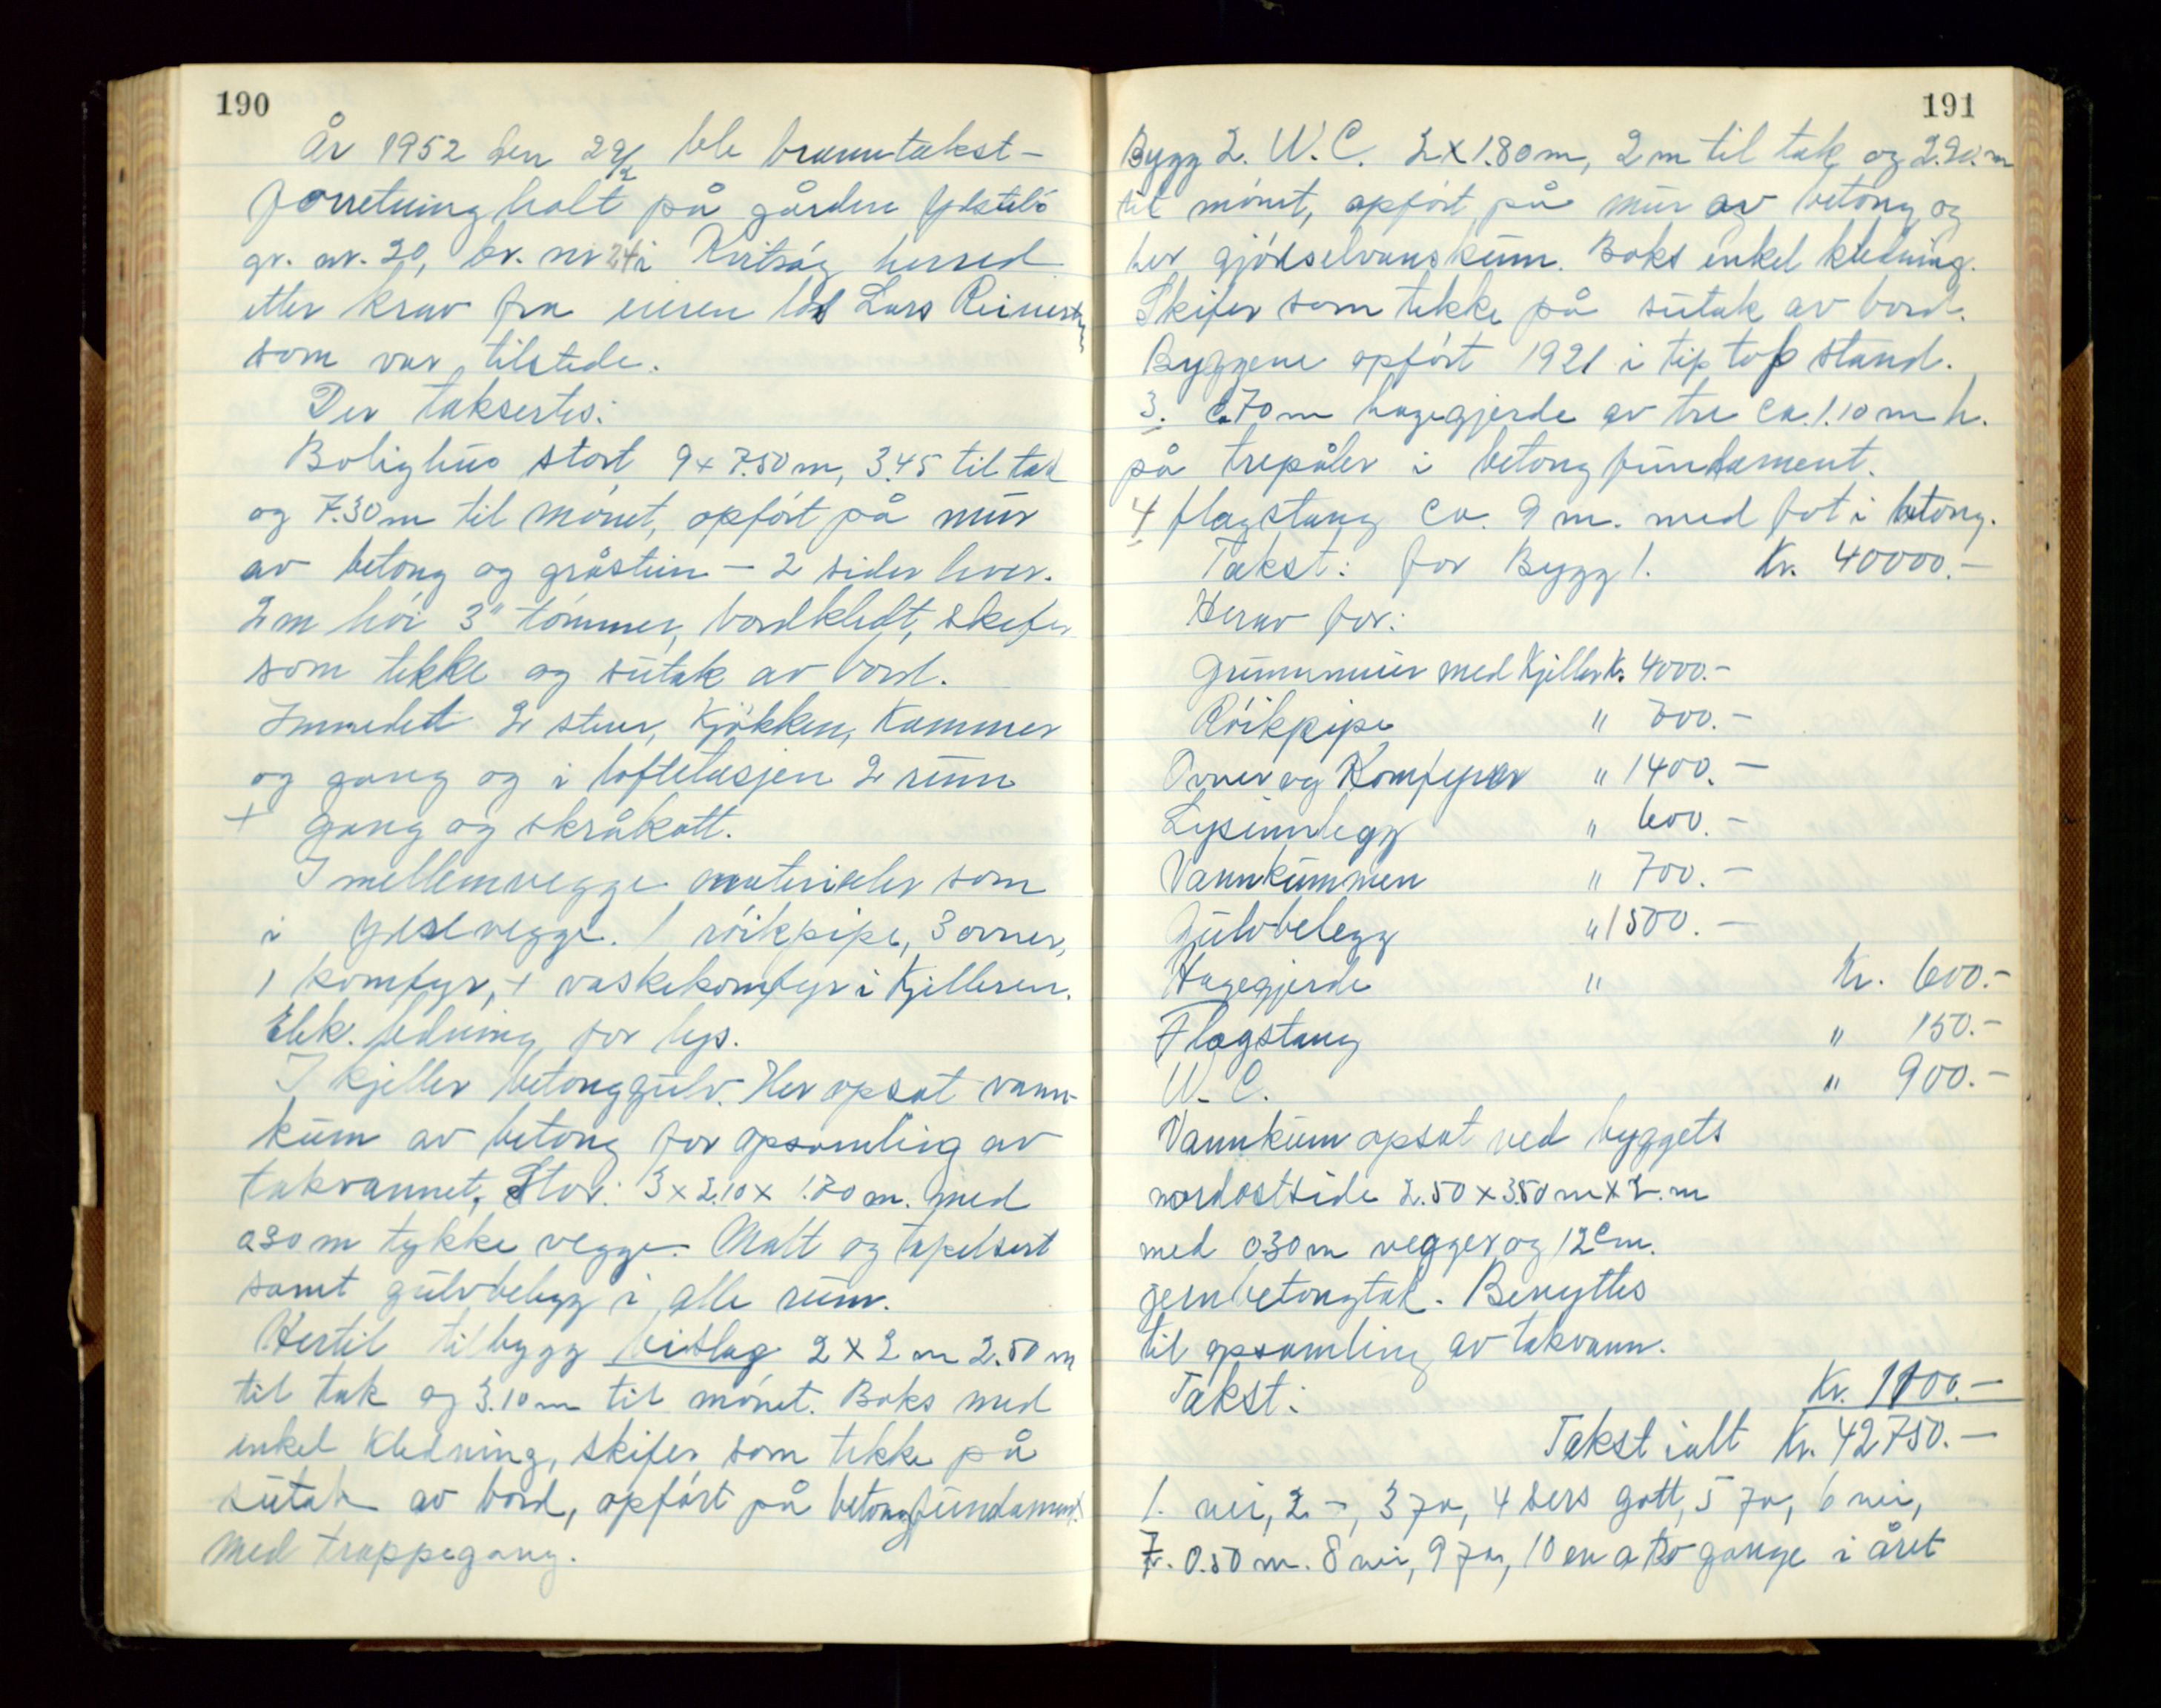 190
År 1952 den 29/2 ble branntakst-
forretning halt på gården Ydstebö
gr. nr. 20, br. nr 24 i Kvitsöy herred
etter krav fra eieren Lars Reinertsen
som var tilstede.
Der taksertes:
Bolighus stort 9 x 7.50 m, 3.45 til tak
og 7.30 m til mönet, opfört på mur
av betong og gråstein - 2 sider hver.
2 m höi 3" tömmer, bordkledt, skifer
som tekke og sutak av bord.
Innredet 2 stuer, Kjökken, Kammer
og gang og i loftetasjen 2 rum
+ gang og skråkott.
I mellemvegge materialer som
i ydrevegge. 1 röikpipe, 3 ovner,
1 komfyr, + vaskekomfyr i Kjelleren.
Elek. ledning for lys.
I kjeller betonggulv. Her opsat vann-
kum av betong for opsamling av
takvannet, Stor: 3 x 2.10 x 1.70 m. med
0.30 m tykke vegge. Malt og tapetsert
samt gulvbelegg i alle rum.
Hertil tilbygg bislag 2 x 2 m 2.50 m
til tak og 3.10 m til mönet. Boks med
enkel Kledning, skifer som tekke på
sutak av bord, opfört på betongfundament.
med trappegang.
191
Bygg 2. W.C. 2 x 1.80 m, 2 m til tak og 2.90. m
til mönet, opfört på mur av betong og
her gjödselvannskum. Boks enkel kledning.
Skifer som tekke på sutak av bord.
Byggene opfört 1921 i tip top stand.
3. c. 70 m hagegjerde av tre ca. 1.10 m h.
på trepåler i betong fundament.
4 flagstang ca. 9 m. med fot i betong.
Takst: for Bygg 1. Kr. 40000.-
Herav for:
Grunnmur med Kjeller Kr. 4000.-
Röikpipe " 700.-
Ovner og Komfyrer " 1400.-
Lysinnlegg " 600.-
Vannkummen " 700.-
Gulvbelegg " 1500.-
Hagegjerde " Kr. 600.-
Flagstang " 150.-
W. C. " 900.-
Vannkum opsat ved byggets
nordostside 2.50 x 3.50 m x 2. m
med 0.30 m vegger og 12 cm.
jernbetongtak. Benyttes
til opsamling av takvann.
Takst: Kr. 1100.-
Takst ialt Kr. 42750.-
1. nei, 2 -, 3 ja, 4 sers gott, 5 ja, 6 nei,
7. 0.50 m. 8 nei, 9 ja, 10 en a to gange i året